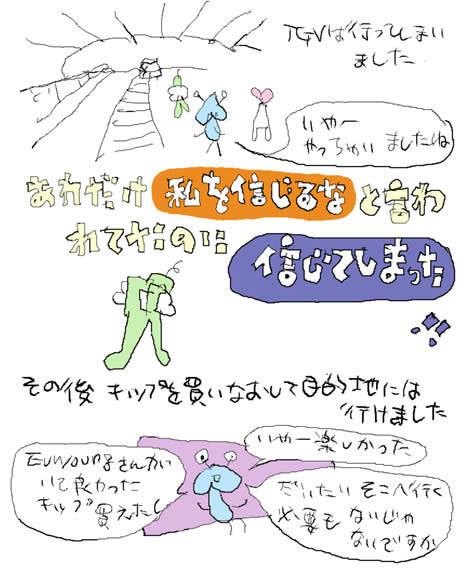 TGVは行ってしまい
ました
いやー
やっちゃいましたね
あれだけ私を信じるなと言わ
れてたのに
信じてしまった
その後 キップを買いなおして目的地には
行けました
いやー楽しかった
さんが
いて良かった
キップ買えたし
だいたいそこへ行く
必要もないじゃ
ないですか